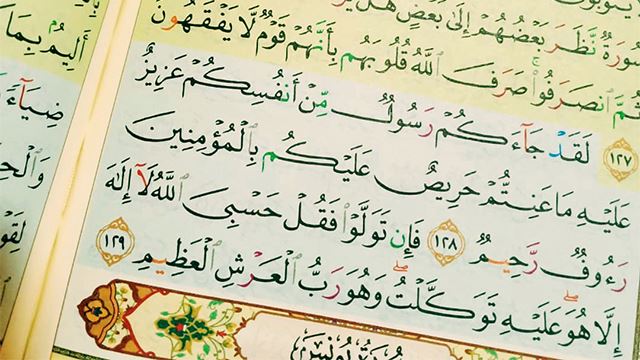 سُورَةٌ نَّظَرَ بَعْضُهُمْ إِلَىٰ بَعْضٍ هَلْ
ثُمَّ ٱنصَرَفُوا۟ ۚ صَرَفَ ٱللَّهُ قُلُوبَهُم بِأَنَّهُمْ قَوْمٌ لَّا يَفْقَهُونَ
١٢٧ لَقَدْ جَآءَكُمْ رَسُولٌ مِّنْ أَنفُسِكُمْ عَزِيزٌ
عَلَيْهِ مَا عَنِتُّمْ حَرِيصٌ عَلَيْكُم بِٱلْمُؤْمِنِينَ
رَءُوفٌ رَّحِيمٌ ١٢٨ فَإِن تَوَلَّوْا۟ فَقُلْ حَسْبِىَ ٱللَّهُ لَآ إِلَٰهَ
إِلَّا هُوَ ۖ عَلَيْهِ تَوَكَّلْتُ ۖ وَهُوَ رَبُّ ٱلْعَرْشِ ٱلْعَظِيمِ ١٢٩
سُورَةُ يُونُسَ
أَلِيمٌ بِمَا
ضِيَآءً